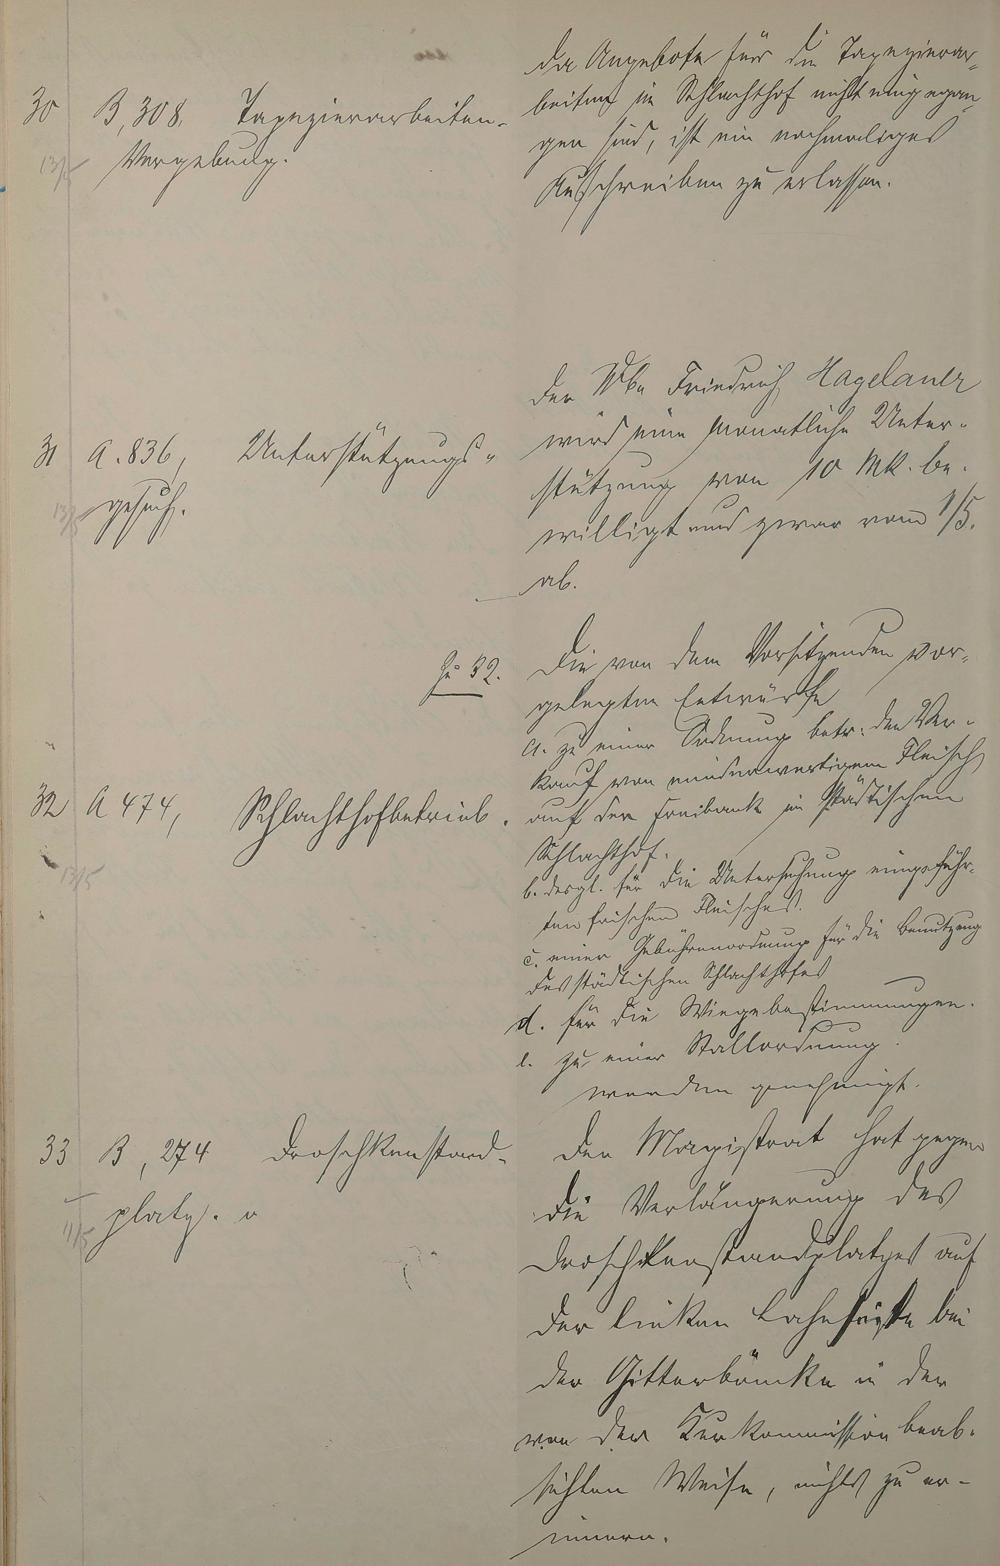 30 B, 308, Tapezierarbeiten-
Vergebung.
13/5
Da Angebote für die Tapezierar-
beiten im Schlachthof nicht eingegan-
gen sind, ist ein nochmaliges
Ausschreiben zu erlassen.
31 A. 836, Unterstützungs-
gesuch.
13/5
Der Wwe Friedrich Hagelauer
wird eine monatliche Unter-
stützung von 10 Mk. be-
willigt und zwar vom 1/5.
ab.
32 A 474, Schlachthofbetrieb.
13/5
Zu 32.
Die von dem Vorsitzenden vor-
gelegten Entwürfe
a. zu einer Ordnung betr. den Ver-
kauf von minderwertigem Fleisch
auf der Freibank im städtischen
Schlachthof.
b. desgl. für die Untersuchung eingeführ-
ten frischen Fleisches.
c. einer Gebührenordnung für die Benutzung
des städtischen Schlachthofes
d. für die Wiegebestimmungen.
e. zu einer Stallordnung.
werden genehmigt.
33 B, 274 Droschkenstand-
platz.
11/5
Der Magistrat hat gegen
die Verlängerung des
Droschkenstandplatzes auf
der linken Lahnseite bei
der Gitterbrücke in der
von der Kurkommission beab-
sichten Weise, nichts zu er-
innern.